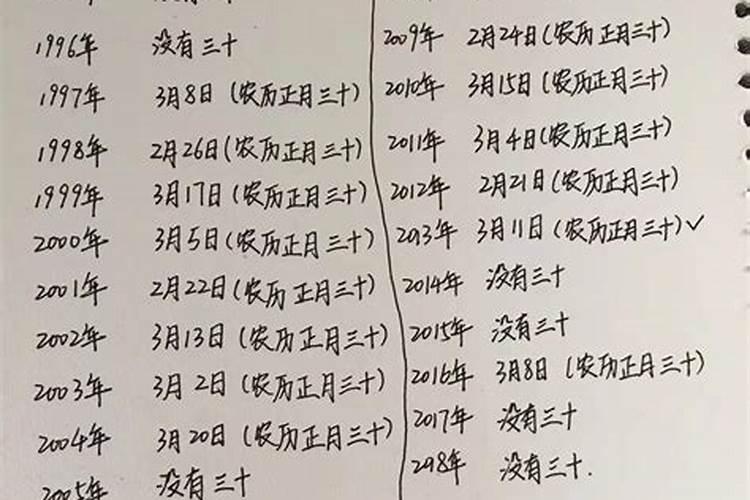 1996年 没有三十
1997年 3月8日(农历正月三十)
1998年 2月26日(农历正月三十)
1999年 3月17日(农历正月三十)
2000年 3月5日(农历正月三十)
2001年 2月22日(农历正月三十)
2002年 3月13日(农历正月三十)
2003年 3月2日(农历正月三十)
2004年 3月20日(农历正月三十)
2005年 没有三十
2009年 2月24日(农历正月三十)
2010年 3月15日(农历正月三十)
2011年 3月4日(农历正月三十)
2012年 2月21日(农历正月三十)
2013年 3月11日(农历正月三十)✓
2014年 没有三十
2015年 没有三十
2016年 3月8日(农历正月三十)
2017年 没有三十
2018年 没有三十.